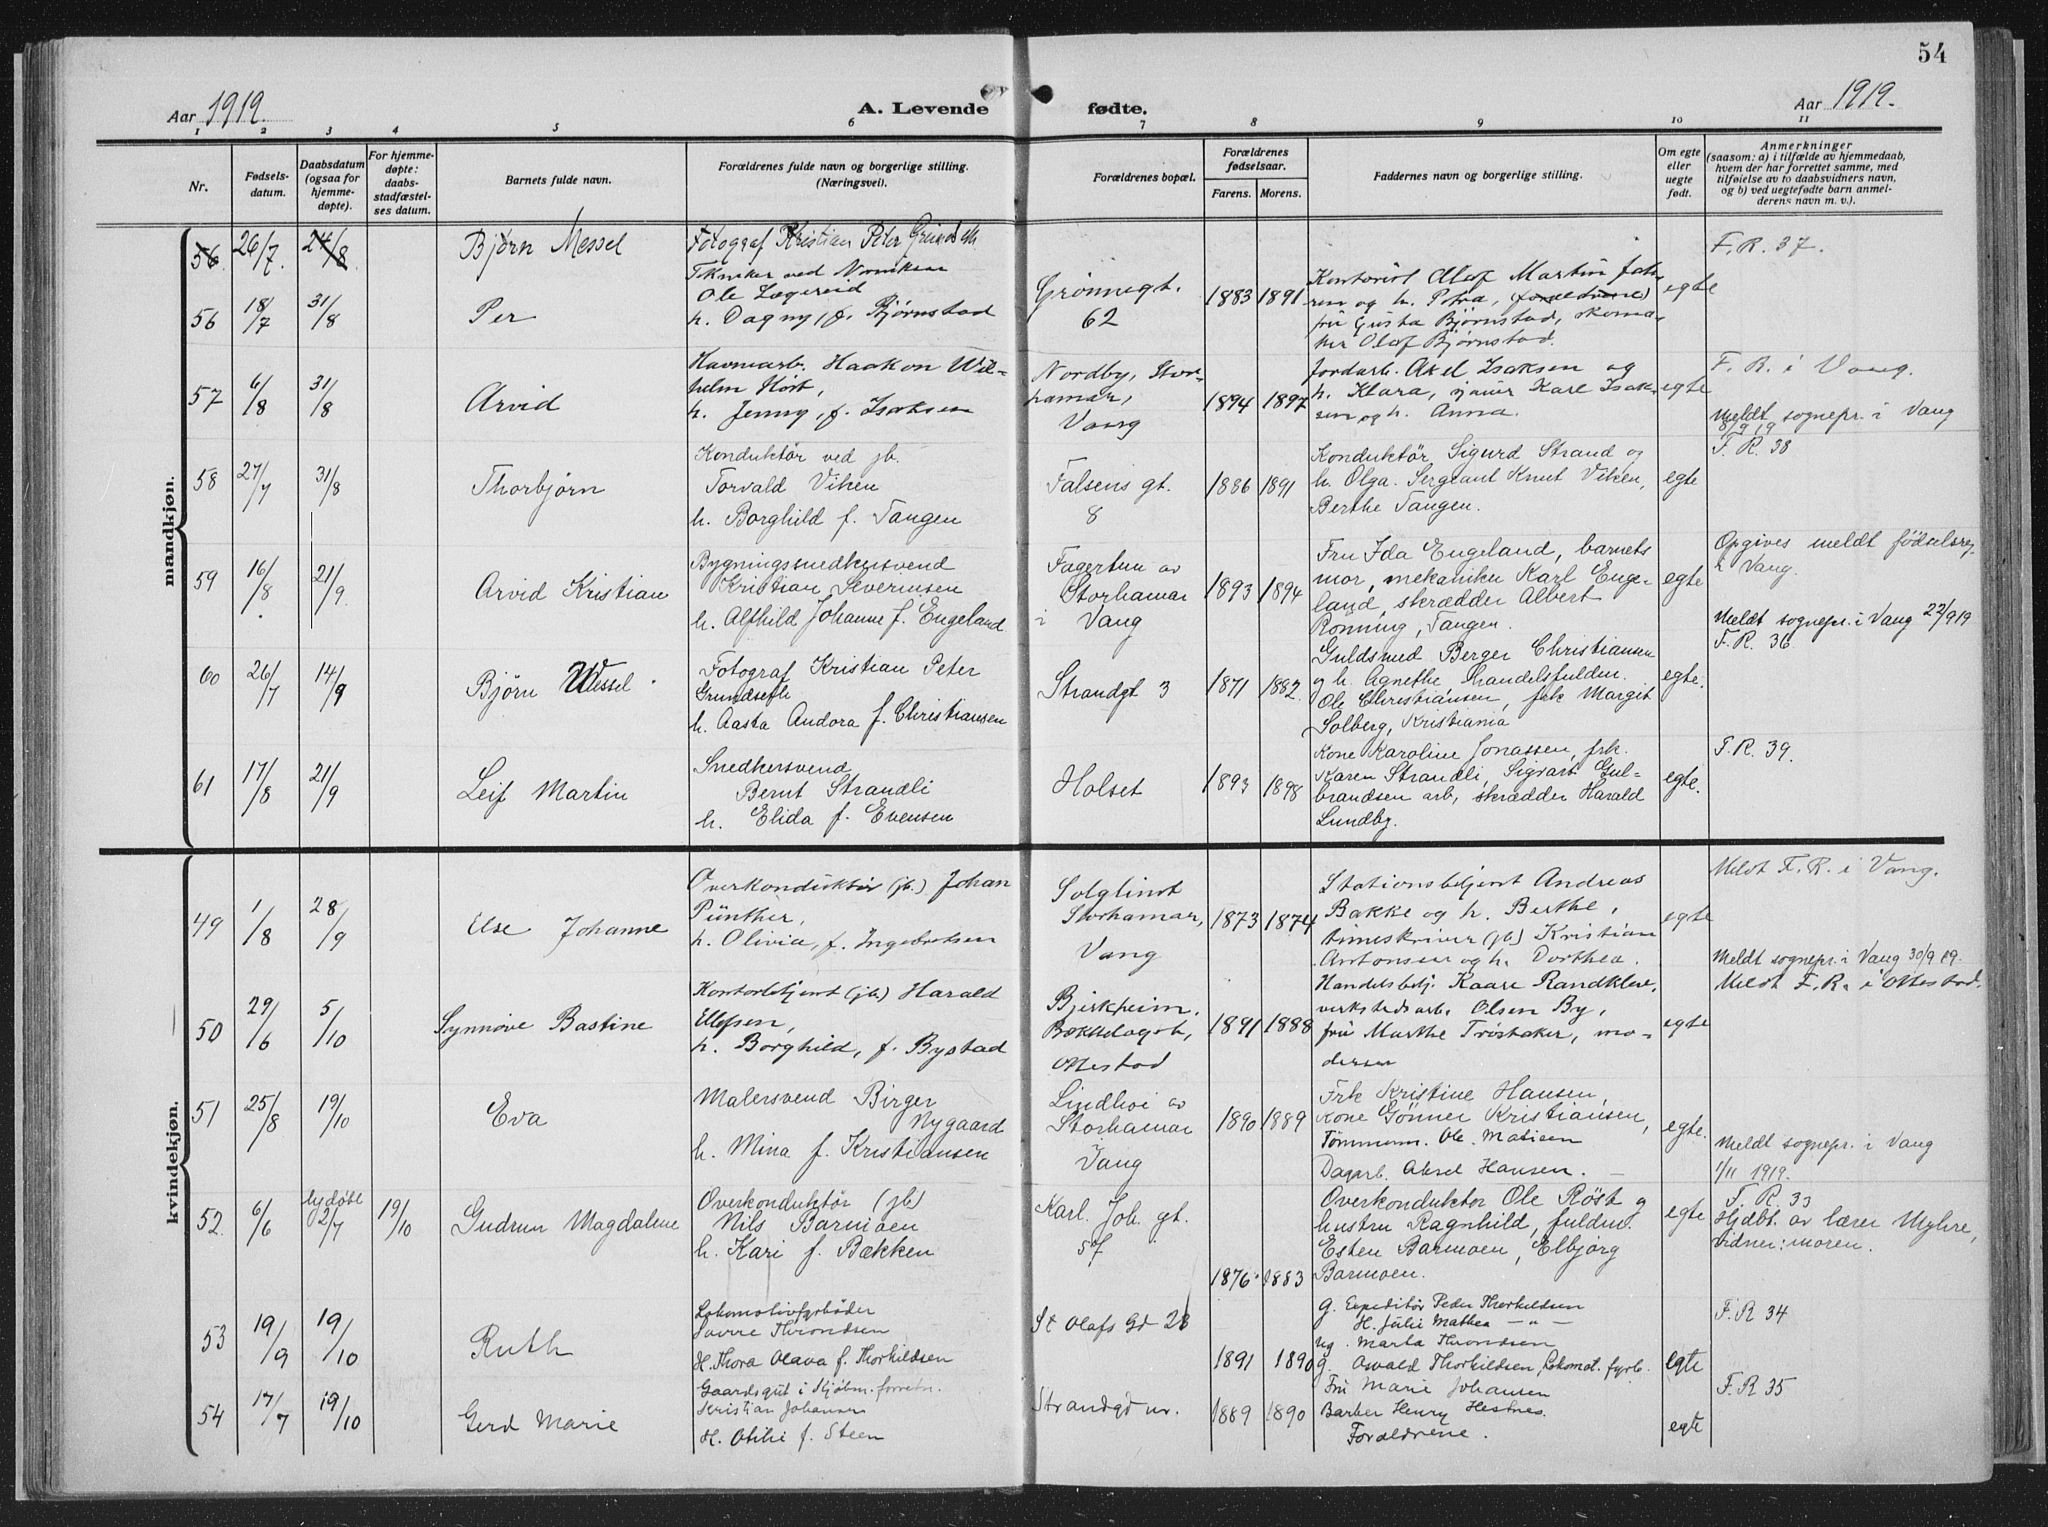 54
Aar 1919.
A. Levende fødte.
Aar 1919.
1 2 3 4 5 6 7 8 9 10 11
Nr.
Fødsels-
datum.
Daabsdatum
(ogsaa for
hjemme-
døpte).
For hjemme-
døpte:
daabs-
stadfæstel-
ses datum.
Barnets fulde navn.
Forældrenes fulde navn og borgerlige stilling.
(Næringsvei).
Forældrenes bopæl.
Forældrenes
fødselsaar.
Farens. Morens.
Faddernes navn og borgerlige stilling.
Om egte
eller
uegte
født.
Anmerkninger
(saasom: a) i tilfælde av hjemmedaab,
hvem der har forrettet samme, med
tilføielse av to daabsvidners navn,
og b) ved uegtefødte barn anmel-
derens navn m. v.).
mandkjøn.
56 26/7. 24/8 Bjørn Messel
Fotograf Kristian Peter
F. R. 37.
56 18/7 31/8 Per
Tekniker ved
Ole Lægereid
h. Dagny, f. Bjørnstad
Grønnegt.
62
1883 1891
Kontorist Olaf Martin
og h. Petra, (forældrene)
fru Gusta Bjørnstad, skoma-
ker Olaf Bjørnstad.
egte
57 6/8 31/8 Arvid
Havnearb. Haakon Wil-
helm Hört,
h. Jenny, f. Isaksen
Nordby, Stor-
hamar,
Vang
1894 1897
Jordarb. Axel Isaksen og
h. Klara, Karl Isak-
sen og h. Anna.
egte
F. R. i Vang.
Meldt sognepr. i Vang
8/9 19
58 27/7 31/8 Thorbjørn
Konduktör ved jb.
Torvald Viken
h. Borghild f. Tangen
Falsens gt.
8
1886 1891
Konduktör Sigurd Strand og
h. Olga. Sergeant Knut Viken,
Berthe Tangen.
egte
F. R. 38
59 16/8 21/9. Arvid Kristian
Bygningssnedkersvend
Kristian Severinsen
h. Alfhild Johanne f. Engeland
Fagertun av
Storhamar
i Vang
1893 1894
Fru Ida Engeland, barnets
mor, mekaniker Karl Enge-
land, skrædder Albert
Rönning, Tangen.
egte
Opgives meldt fødselsreg
i Vang.
Meldt sognepr. i Vang 22/9 19
60 26/7 14/9 Bjørn Wessel.
Fotograf Kristian Peter
Grundseth
h. Aasta Andora f. Christiansen
Strandgt 3
1871 1882
Guldsmed Berger Christiansen
og h. Agnethe Handelsfuldm.
Ole Christiansen, frk Margit
Solberg, Kristiania
egte.
F. R. 36
61 17/8 21/9 Leif Martin
Snedkersvend
Bernt Strandli
h. Elida f. Evensen
Holset
1893 1898
Kone Karoline Jonassen, frk.
Karen Strandli, Sigvart Gul-
brandsen arb, skrædder Harald
Lundby.
egte.
F. R. 39.
kvindekjøn.
49 1/8 28/9 Else Johanne
Overkonduktör (jb.) Johan
Pünther,
h. Olivia, f. Ingebretsen
Solglimt
Storhamar,
Vang
1873 1874
Stationsbetjent Andreas
Bakke og h. Berthe,
timeskriver (jb) Kristian
Antonsen og h. Dorthea.
egte
Meldt F. R. i Vang.
Meldt sognepr. i Vang 30/9 19.
50 29/6 5/10 Synnöve Bastine
Kontorbetjent (jb.) Harald
Ellefsen,
h. Borghild, f. Bystad
Bjerkheim,
Ottestad
1891 1888
Handelsbetj. Kaare Randklev,
verkstedsarb. Olsen By,
fru Marthe Tröstaker, mo-
deren
egte
Meldt F. R. i Ottestad.
51 25/8 19/10 Eva
Malersvend Birger
Nygaard
h. Mina f. Kristiansen
Lindhoi av
Storhamar
i Vang
1890 1889
Frk Kristine Hansen,
Kone Gönner Kristiansen,
Tömmerm. Ole Matisen
Dagarb. Aksel Hansen.
egte.
Meldt sognepr. i Vang
1/11 1919.
52. 6/6 2/7 19/10 Gudrun Magdalene
Overkonduktör (jb)
Nils Barmoen
h. Kari f. Bækken
Karl. Joh. gt.
1876. 1883
Overkonduktör Ole Röst og
hustru Ragnhild, fuldm.
Esten Barmoen, Elbjörg
Barmoen.
egte
F. R. 33
Hjdbt. av lærer Myhre,
vidner: moren.
53 19/9 19/10 Ruth
Lokomotivfyrbøder
Sverre Throndsen
H. Thora Olava f. Thorkildsen
St Olafs Gd 28
1891 1890
G. Expeditör Peder Thorkildsen
H. Julie Mathea — " —
Ug. Marta Throndsen
G. Oswald Thorkildsen, Lokomot. fyrb.
egte
F. R 34
54 17/7 19/10 Gerd Marie
Gaardsgut i Kjøbm. forretn.
Kristian Johansen
H. Otilie f. Steen
Strandgd nr.
1889 1890
Fru Marie Johansen
Barber Henry Hestnes.
Forældrene.
egte
F. R 35